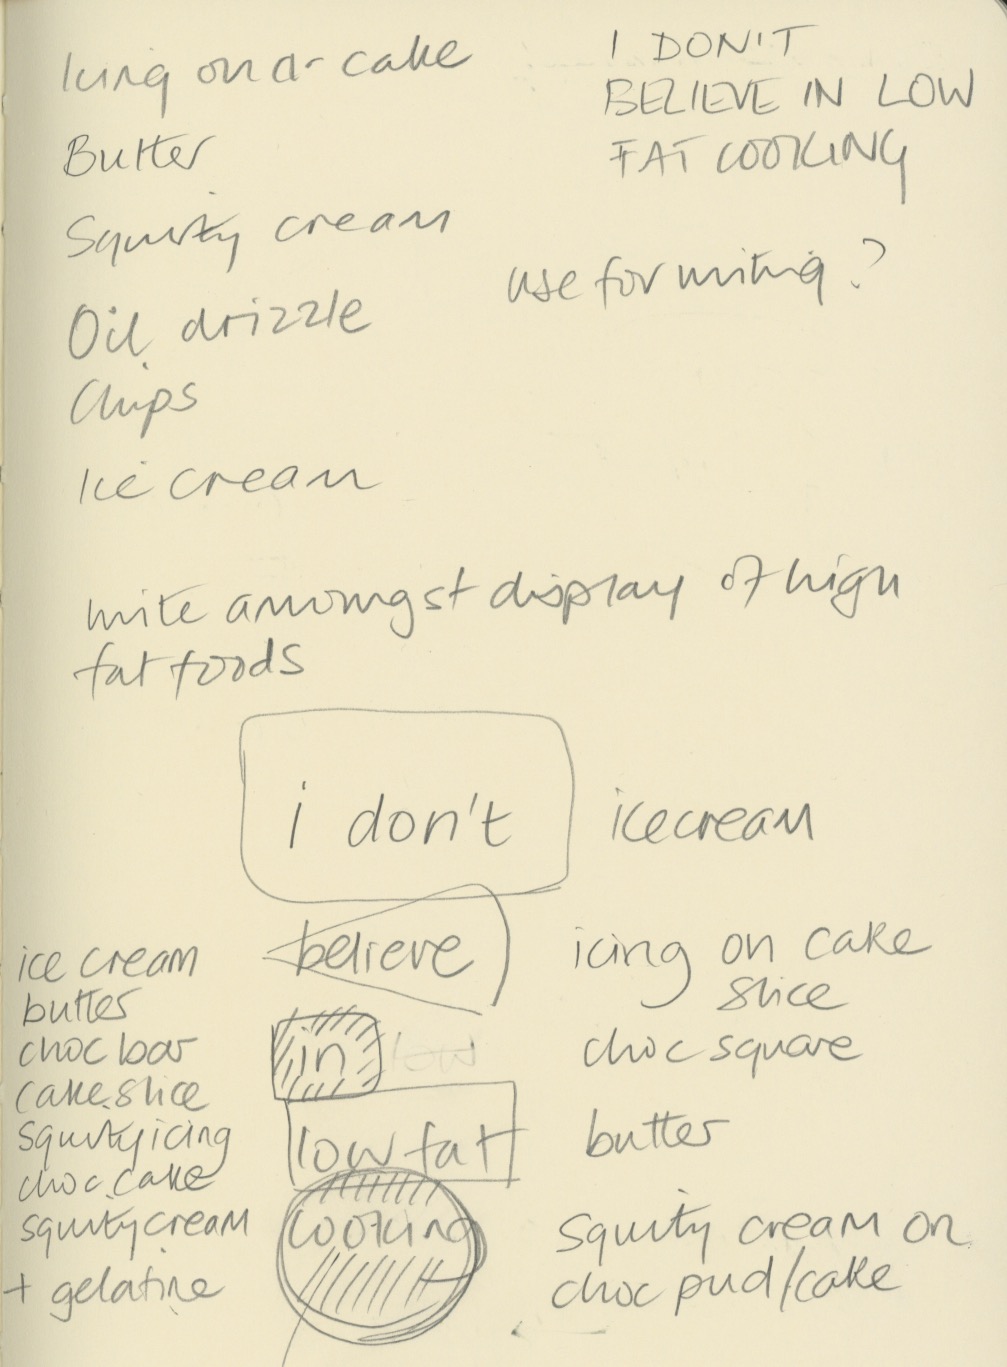 Icing on a cake
Butter
Squirty cream
Oil drizzle
Chips
Ice cream
I DON'T
BELIEVE IN LOW
FAT COOKING
use for writing?
write amongst display of high
fat foods
i don't
icecream
believe
icing on cake
slice
in
low
choc square
low fat
butter
cooking
squirty cream on
choc pud/cake
ice cream
butter
choc bar
cake slice
squirty icing
choc cake
squirty cream
+ gelatine